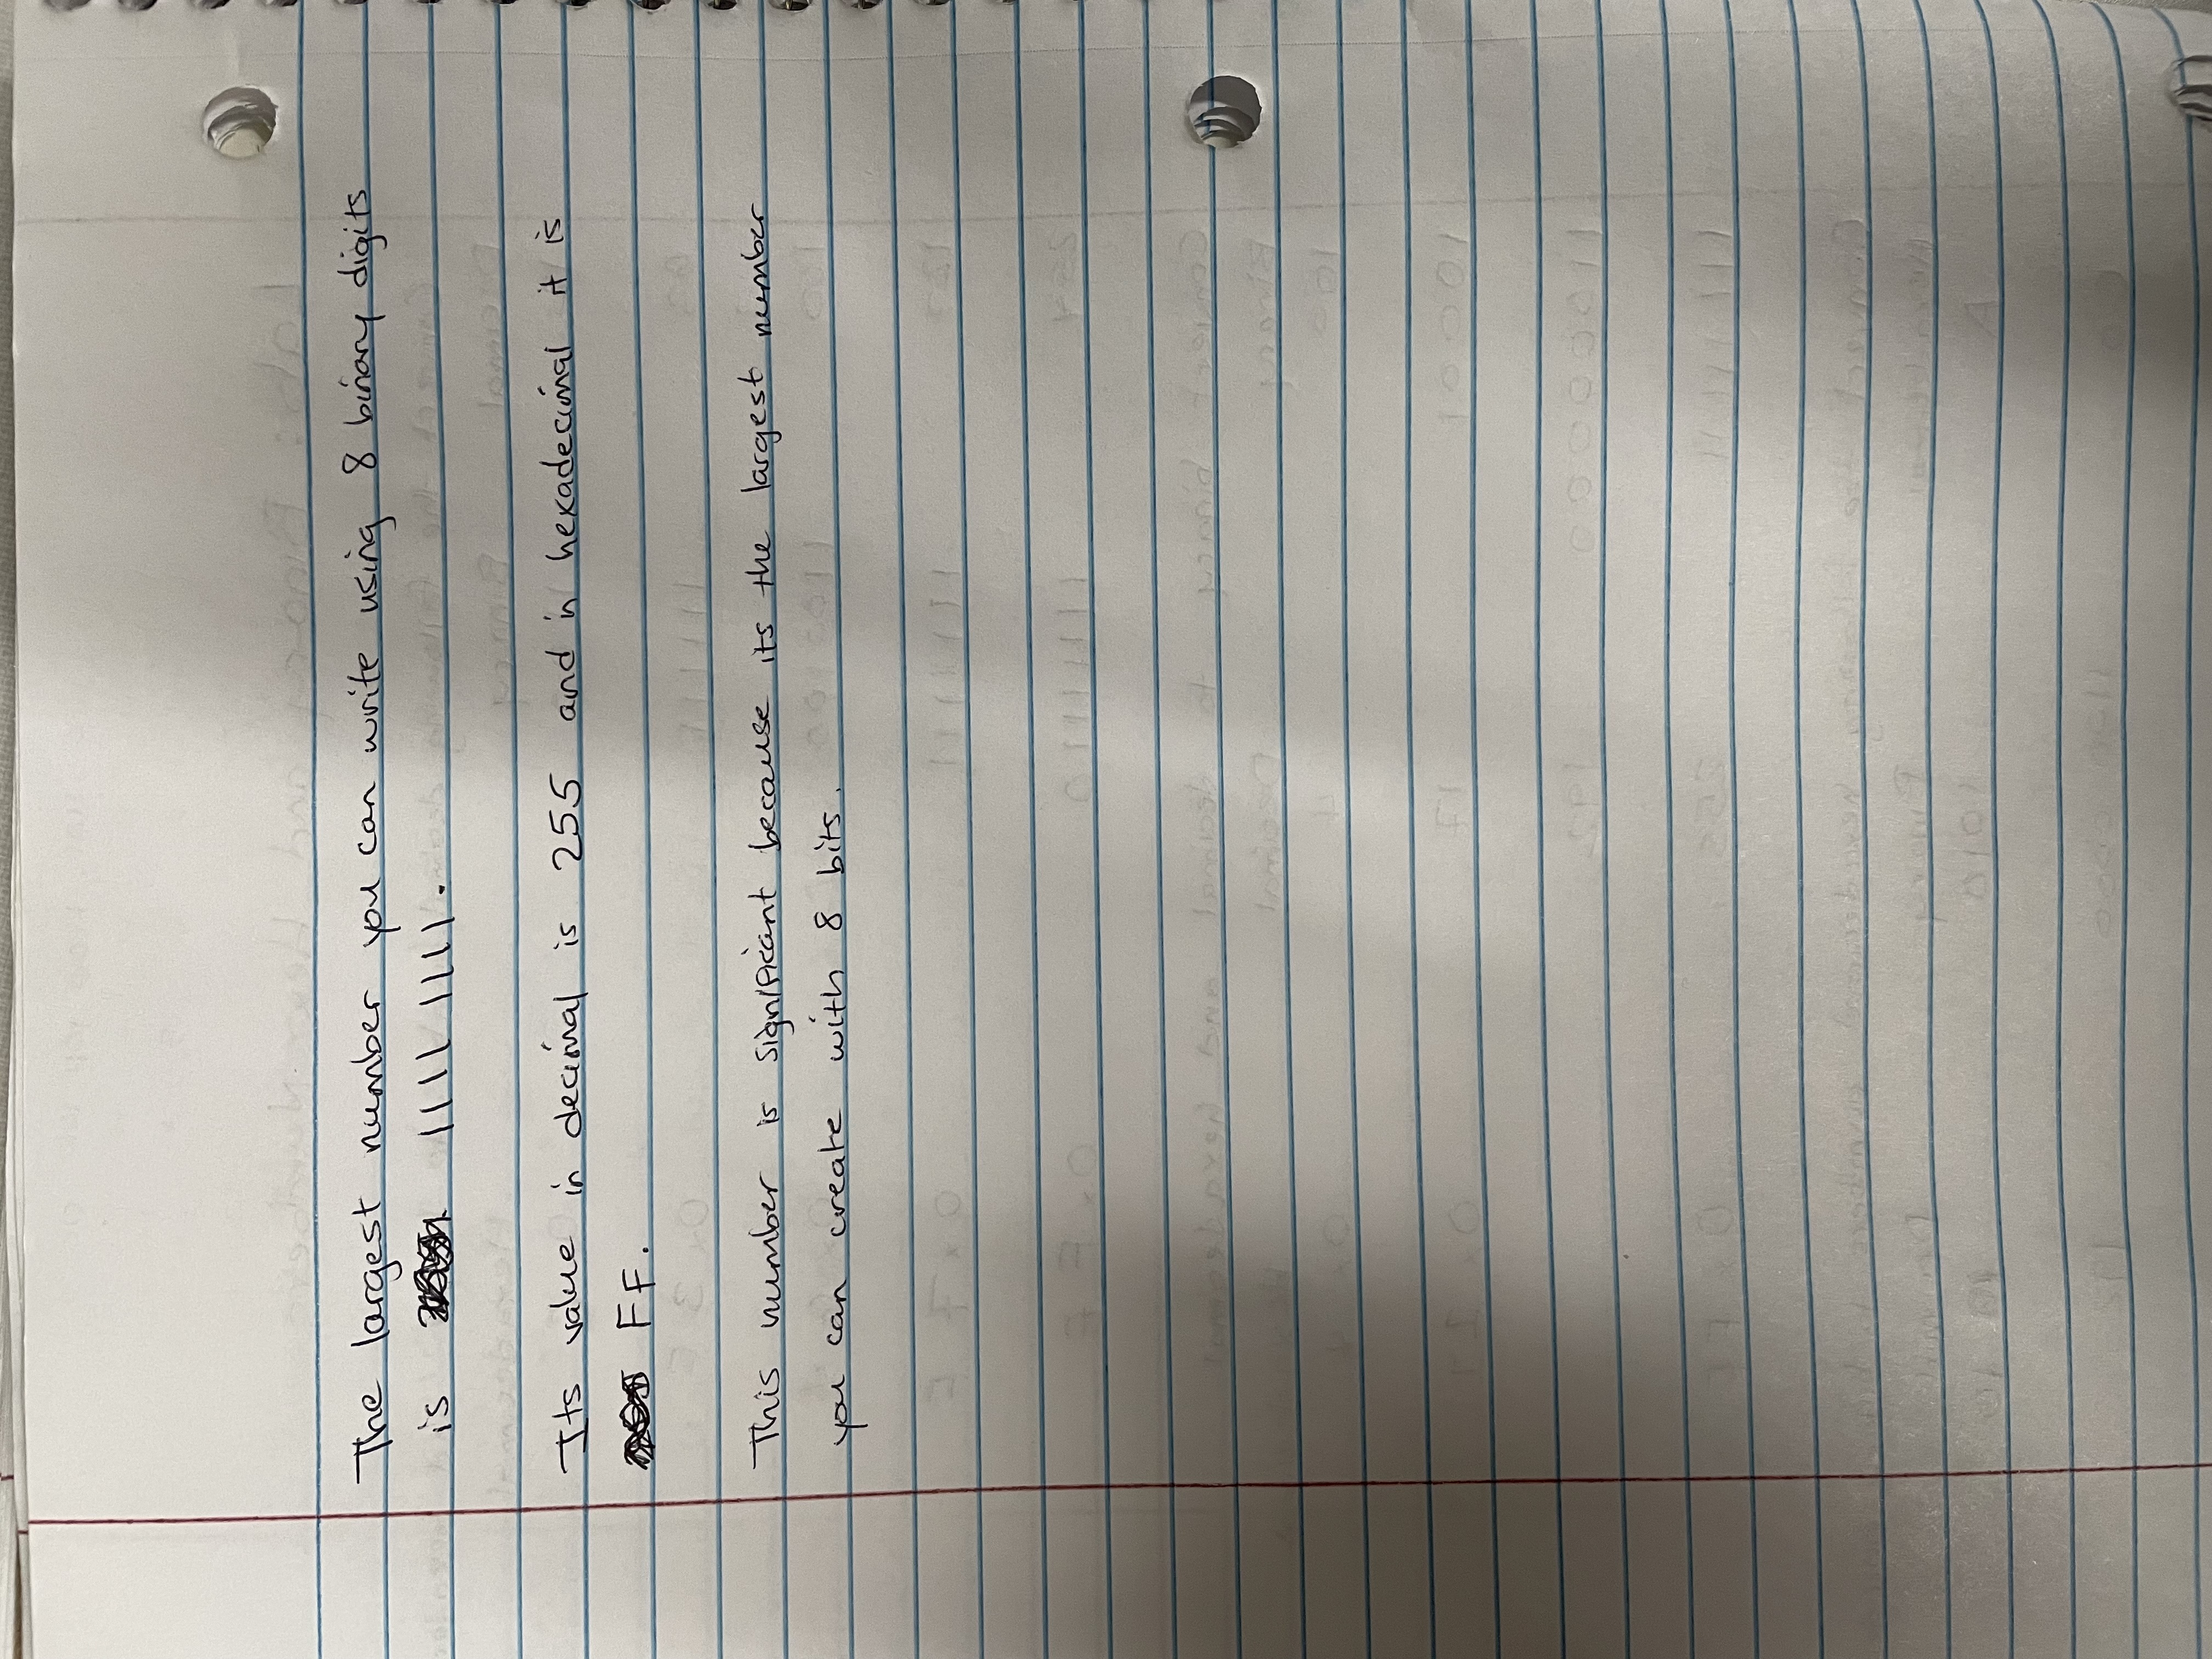 The largest number you can write using 8 binary digits
is 1111 1111.
Its value in decimal is 255 and in hexadecimal it is
FF.
This number is significant because its the largest number
you can create with 8 bits.